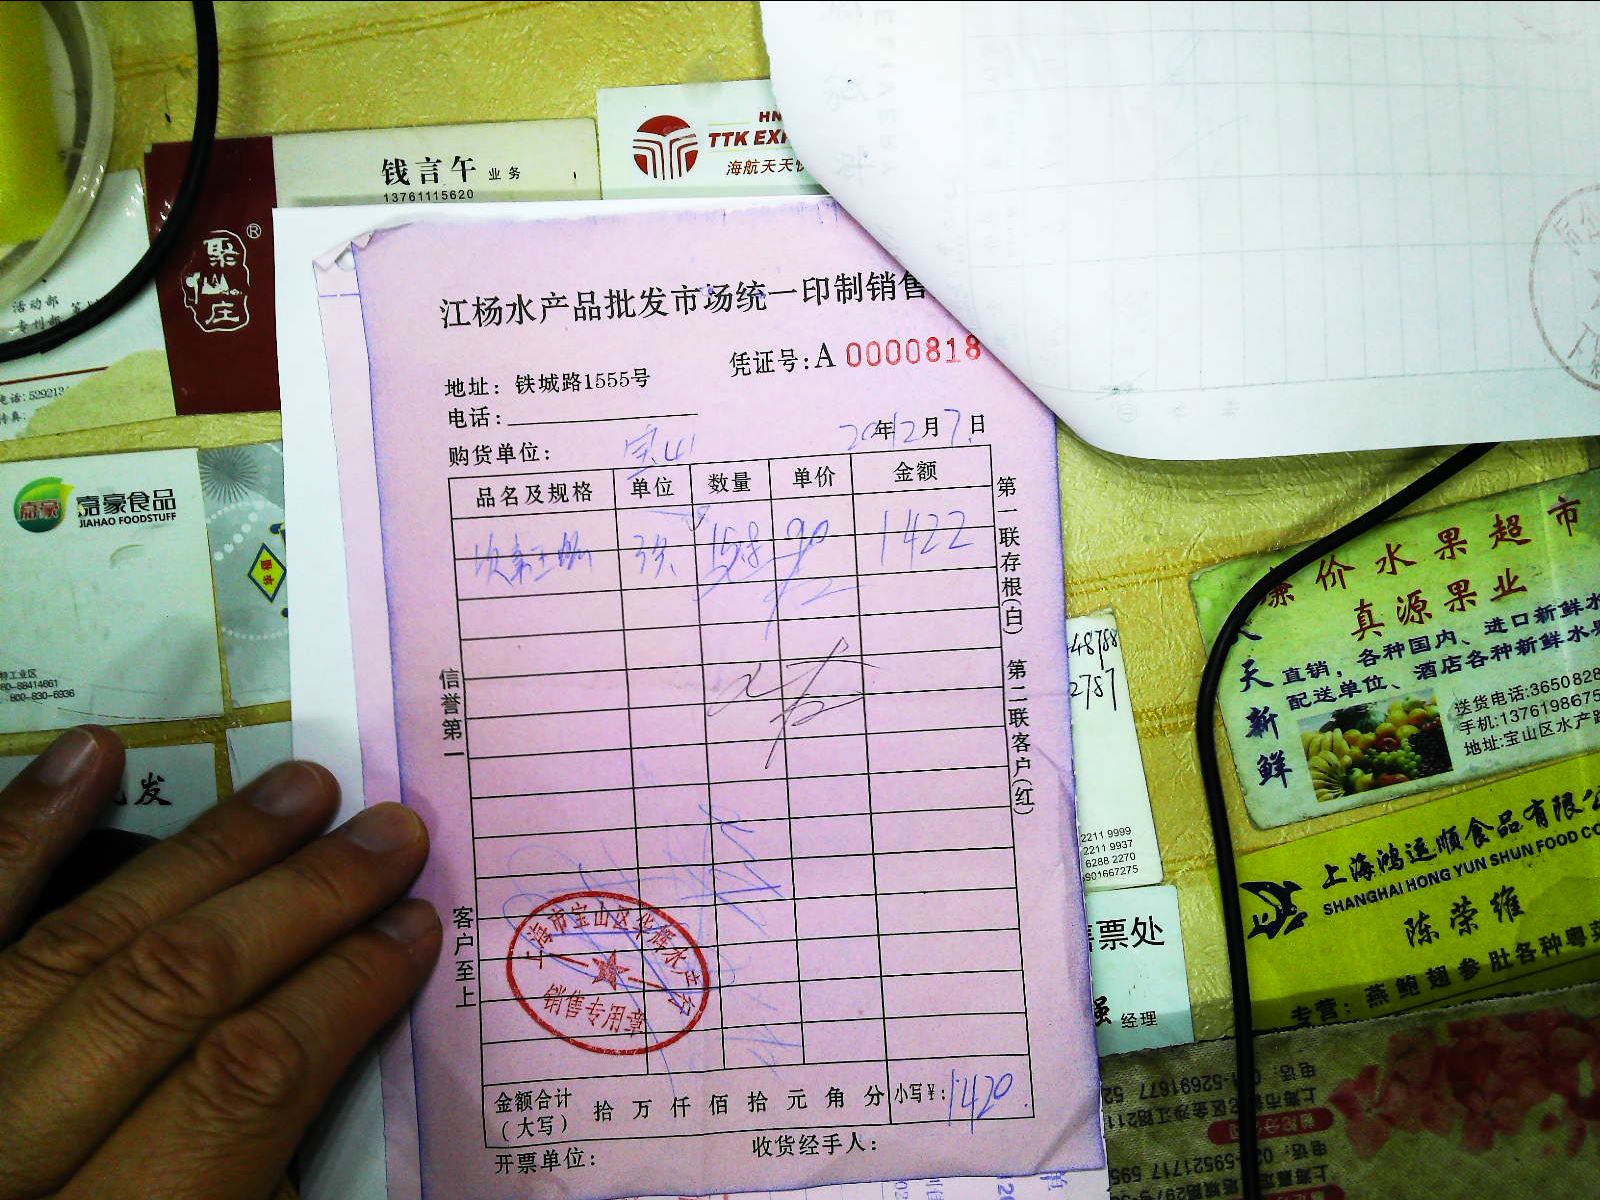 钱言午 业务
13761115620
聚仙庄®
HN
TTK EX
海航天天快
活动部
专刊部
嘉豪食品
JIAHAO FOODSTUFF
嘉豪
特工业区
80-88414661
800-830-6936
发
江杨水产品批发市场统一印制销售
凭证号: A 0000818
地址: 铁城路1555号
电话:
购货单位: 宝山
年12月7日
品名及规格 单位 数量 单价 金额
158 90 1422
第一联存根(白) 第二联客户(红)
信誉第一
客户至上
上海市宝山区华辉水产行
销售专用章
金额合计
(大写)
拾 万 仟 佰 拾 元 角 分 小写¥: 1420
开票单位: 收货经手人:
48788
2787
2211 9999
2211 9937
6288 2270
901667275
售票处
强 经理
廉价水果超市
真源果业
天天新鲜
直销，各种国内、进口新鲜水
配送单位、酒店各种新鲜水果
送货电话:3650828
手机:1376198675
地址:宝山区水产路
上海鸿运顺食品有限公
SHANGHAI HONG YUN SHUN FOOD CO
陈荣维
专营: 燕鲍翅参肚各种粤菜